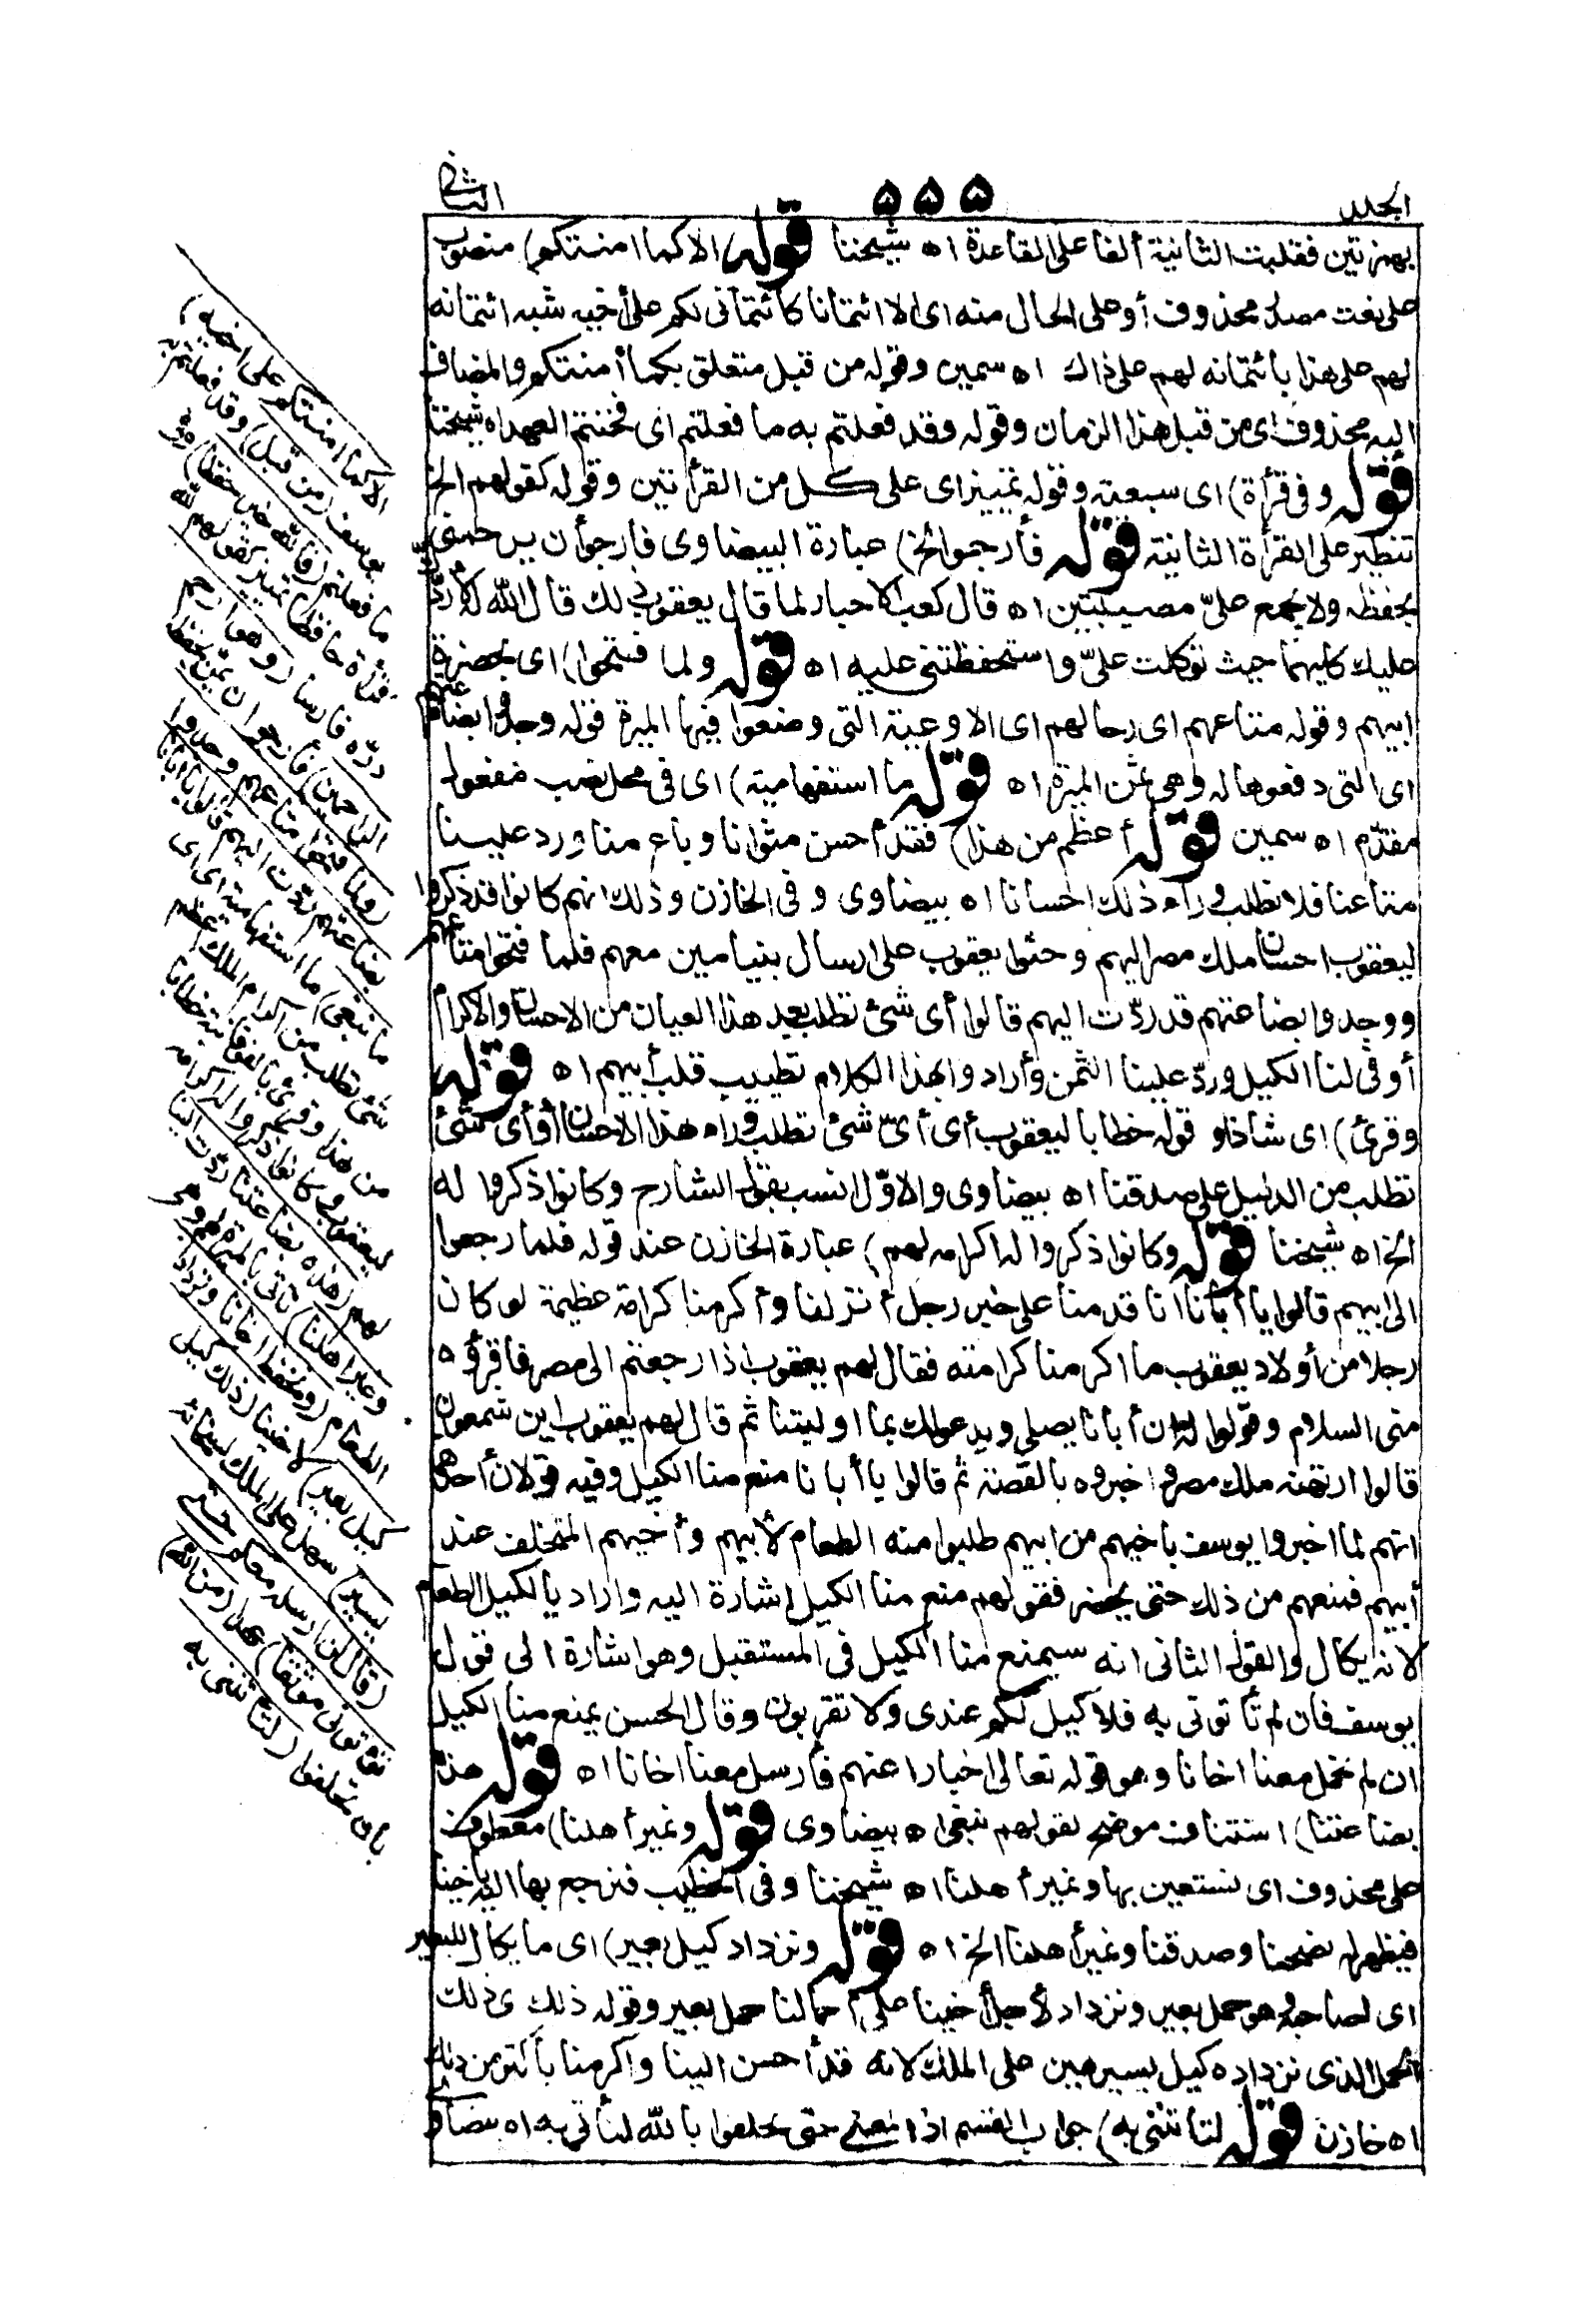 الجلد ۵۵۵ الثاني
بهمزتين فقلبت الثانية ألفا على القاعدة اه شيخنا قوله (الا كما امنتكم) منصوب
على نعت مصدر محذوف أو على الحال منه اى الا ائتمانا كائتمانى لكم على أخيه شبه ائتمانه
لهم على هذا بائتمانه لهم على ذاك اه سمين وقوله من قبل متعلق بكما أمنتكم والمضاف
اليه محذوف اى من قبل هذا الزمان وقوله وقد فعلتم به ما فعلتم اى فخنتم العهد اه شيخنا
قوله وفى قرأة) اى سبعية وقوله تمييز اى على كل من القرأتين وقوله كقولهم الخ
تنظير على القرأة الثانية قوله فأرحموا الخ) عبارة البيضاوى فارجو أن يرحمنى
بحفظه ولا يجمع علىّ مصيبتين اه قال كعب الاحبار لما قال يعقوب ذلك قال الله لأردّنّ
عليك كليهما حيث توكلت علىّ واستحفظتنى عليه اه قوله ولما فتحوا) اى بحضرة
ابيهم وقوله متاعهم اى رحالهم اى الاوعية التى وضعوا فيها الميرة قوله وجدوا بضاعتهم
اى التى دفعوها له وهى ثمن الميرة اه قوله ما استفهامية) اى فى محل نصب مفعول
مقدّم اه سمين قوله أعظم من هذا) فقد أحسن مثوانا وباع منا ورد علينا
متاعنا فلا نطلب وراء ذلك احسانا اه بيضاوى وفى الخازن وذلك انهم كانوا قد ذكروا
ليعقوب احسان ملك مصر اليهم وحثوا يعقوب على ارسال بنيامين معهم فلما فتحوا متاعهم
ووجدوا بضاعتهم قد ردّت اليهم قالوا أى شئ نطلب بعد هذا العيان من الاحسان والاكرام
أوفى لنا الكيل وردّ علينا الثمن وأرادوا بهذا الكلام تطييب قلب أبيهم اه قوله
وقرئ) اى شاذا وقوله خطابا ليعقوب أى أىّ شئ تطلب وراء هذا الاحسان أو أى شئ
تطلب من الدليل على صدقنا اه بيضاوى والاوّل انسب بقول الشارح وكانوا ذكروا له
الخ اه شيخنا قوله وكانوا ذكروا له اكرامه لهم) عبارة الخازن عند قوله فلما رجعوا
الى ابيهم قالوا يا أبانا انا قدمنا على خير رجل أنزلنا وأكرمنا كرامة عظيمة لو كان
رجلا من أولاد يعقوب ما اكرمنا كرامته فقال لهم يعقوب اذا رجعتم الى مصر فاقرؤه
منى السلام وقولوا له ان أبانا يصلى ويدعو لك بما اوليتنا ثم قال لهم يعقوب اين شمعون
قالوا ارتهنه ملك مصر واخبروه بالقصة ثم قالوا يا أبانا منع منا الكيل وفيه قولان أحدهما
انهم لما اخبروا يوسف باخيهم من ابيهم طلبوا منه الطعام لأبيهم وأخيهم المتخلف عند
أبيهم فمنعهم من ذلك حتى يحضر فقولهم منع منا الكيل اشارة اليه واراد بالكيل الطعام
لانه يكال والقول الثانى انه سيمنع منا الكيل فى المستقبل وهو اشارة الى قول
يوسف فان لم تأتونى به فلا كيل لكم عندى ولا تقربون وقال الحسن يمنع منا الكيل
ان لم تحمل معنا اخانا وهو قوله تعالى اخبارا عنهم فأرسل معنا اخانا اه قوله هذه
بضاعتنا) استئناف موضح لقولهم نبغى اه بيضاوى قوله ونمير أهلنا) معطوف
على محذوف اى نستعين بها ونمير أهلنا اه شيخنا وفى الخطيب فنرجع بها اليه باخينا
فيظهر له نصحنا وصدقنا ونمير أهلنا الخ اه قوله ونزداد كيل بعير) اى ما يكال للبعير
اى لصاحبه وهو حمل بعير ونزداد لأجل أخينا على أحمالنا حمل بعير وقوله ذلك اى ذلك
الحمل الذى نزداده كيل يسير هين على الملك لانه قد أحسن الينا واكرمنا بأكثر من ذلك
اه خازن قوله لتأتننى به) جواب القسم اذ المعنى حتى تحلفوا بالله لتأتنى به اه بيضاوى
الا كما امنتكم على اخيه)
يوسف (من قبل) وقد فعلتم به
ما فعلتم (فالله خير حفظا) وفى
قرأة حافظا تمييز كقولهم لله
درّه فارسا (وهو ارحم
الراحمين) فأرجوا ان يمن بحفظه
(ولما فتحوا متاعهم وجدوا
بضاعتهم ردّت اليهم قالوا يا ابانا
ما نبغى) ما استفهامية اى اى
شئ نطلب من اكرام الملك اعظم
من هذا وقرئ بالفوقانية خطابا
ليعقوب وكانوا ذكروا له اكرامه
لهم (هذه بضاعتنا ردّت الينا
ونمير اهلنا) نأتى بالميرة لهم وهى
الطعام (ونحفظ اخانا ونزداد
كيل بعير) لاخينا (ذلك كيل
يسير) سهل على الملك لسخائه
(قال لن ارسله معكم حتى
تؤتون موثقا) عهدا (من الله)
بان تحلفوا (لتأتننى به